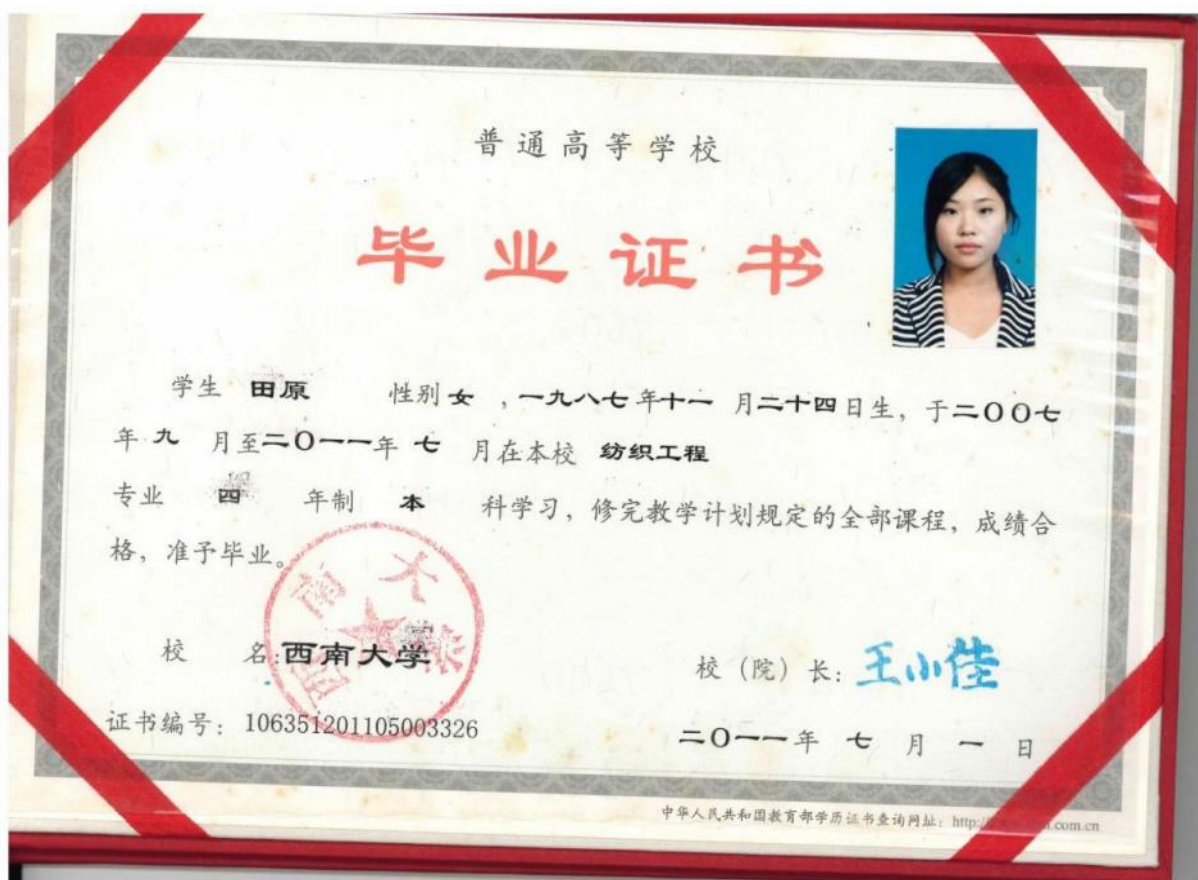 普通高等学校
毕业证书
学生 田原 性别 女 ，一九八七年十一月二十四日生，于二〇〇七
年 九 月至二〇一一年 七 月在本校 纺织工程
专业 四 年制 本 科学习，修完教学计划规定的全部课程，成绩合
格，准予毕业。
西南大学
校 名：西南大学
校（院）长：王小佳
证书编号：106351201105003326
二〇一一年 七 月 一 日
中华人民共和国教育部学历证书查询网址：http:// com.cn